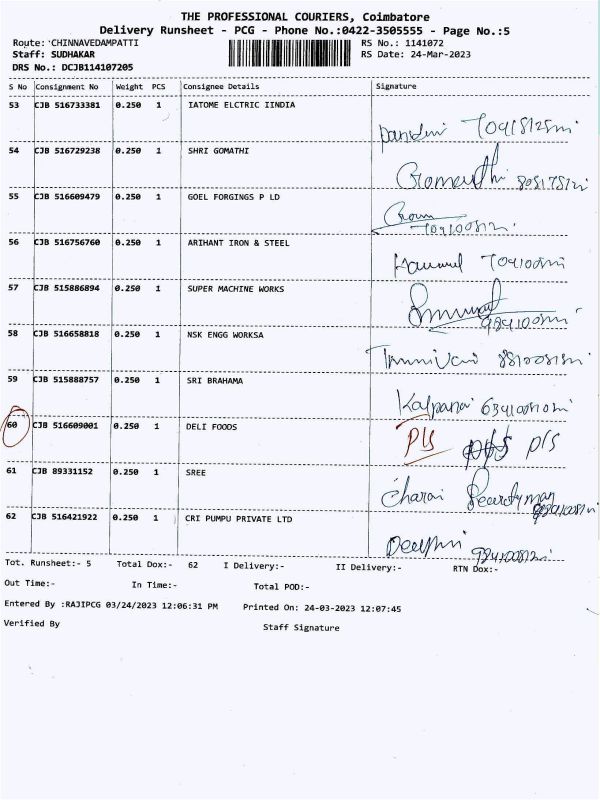 THE PROFESSIONAL COURIERS, Coimbatore
Delivery Runsheet - PCG - Phone No.:0422-3505555 - Page No.:5
Route: CHINNAVEDAMPATTI RS No.: 1141072
Staff: SUDHAKAR RS Date: 24-Mar-2023
DRS No.: DCJB114107205
S No Consignment No Weight PCS Consignee Details Signature
53 CJB 516733381 0.250 1 IATOME ELCTRIC IINDIA
54 CJB 516729238 0.250 1 SHRI GOMATHI
55 CJB 516609479 0.250 1 GOEL FORGINGS P LD
56 CJB 516756760 0.250 1 ARIHANT IRON & STEEL
57 CJB 515886894 0.250 1 SUPER MACHINE WORKS
58 CJB 516658818 0.250 1 NSK ENGG WORKSA
59 CJB 515888757 0.250 1 SRI BRAHAMA
Kalpana
60 CJB 516609001 0.250 1 DELI FOODS
Pls pls
61 CJB 89331152 0.250 1 SREE
62 CJB 516421922 0.250 1 CRI PUMPU PRIVATE LTD
Tot. Runsheet:- 5 Total Dox:- 62 I Delivery:- II Delivery:- RTN Dox:-
Out Time:- In Time:- Total POD:-
Entered By :RAJIPCG 03/24/2023 12:06:31 PM Printed On: 24-03-2023 12:07:45
Verified By Staff Signature